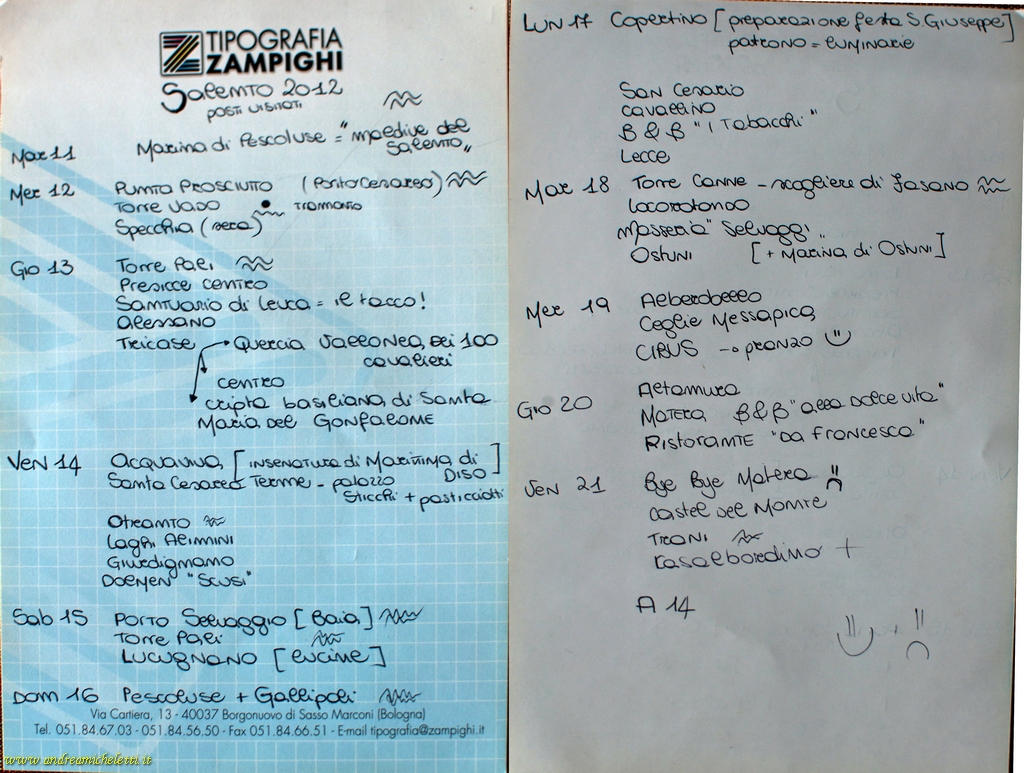 TIPOGRAFIA
ZAMPIGHI
Salento 2012
posti visitati
Mar 11 Marina di Pescoluse = "maldive del
Salento"
Mer 12 Punta Prosciutto (Porto Cesareo)
Torre Vado tramonto
Specchia (sera)
Gio 13 Torre Pali
Presicce centro
Santuario di Leuca = il tacco!
Alessano
Tricase Quercia Vallonea dei 100
cavalieri
centro
cripta basiliana di Santa
Maria del Gonfalone
Ven 14 Acquaviva [insenatura di Marittima di
Diso]
Santa Cesarea Terme - palazzo
Sticchi + pasticciotti
Otranto
Laghi Alimini
Giurdignano
Dolmen "Scusi"
Sab 15 Porto Selvaggio [Baia]
Torre Pali
Lucugnano [lucine]
Dom 16 Pescoluse + Gallipoli
Via Cartiera, 13 - 40037 Borgonuovo di Sasso Marconi (Bologna)
Tel. 051.84.67.03 - 051.84.56.50 - Fax 051.84.66.51 - E-mail tipografia@zampighi.it
www.andreamicheletti.it
Lun 17 Copertino [preparazione festa S. Giuseppe]
patrono = luminarie
San Cesario
Cavallino
B & B "I Tabacchi"
Lecce
Mar 18 Torre Canne - scogliere di Fasano
Locorotondo
Masseria "Selvaggi"
Ostuni [+ Marina di Ostuni]
Mer 19 Alberobello
Ceglie Messapica
CIBUS → pranzo
Gio 20 Altamura
Matera B & B "alla dolce vita"
Ristorante "da Francesca"
Ven 21 Bye Bye Matera
Castel del Monte
Trani
Casalbordino +
A 14